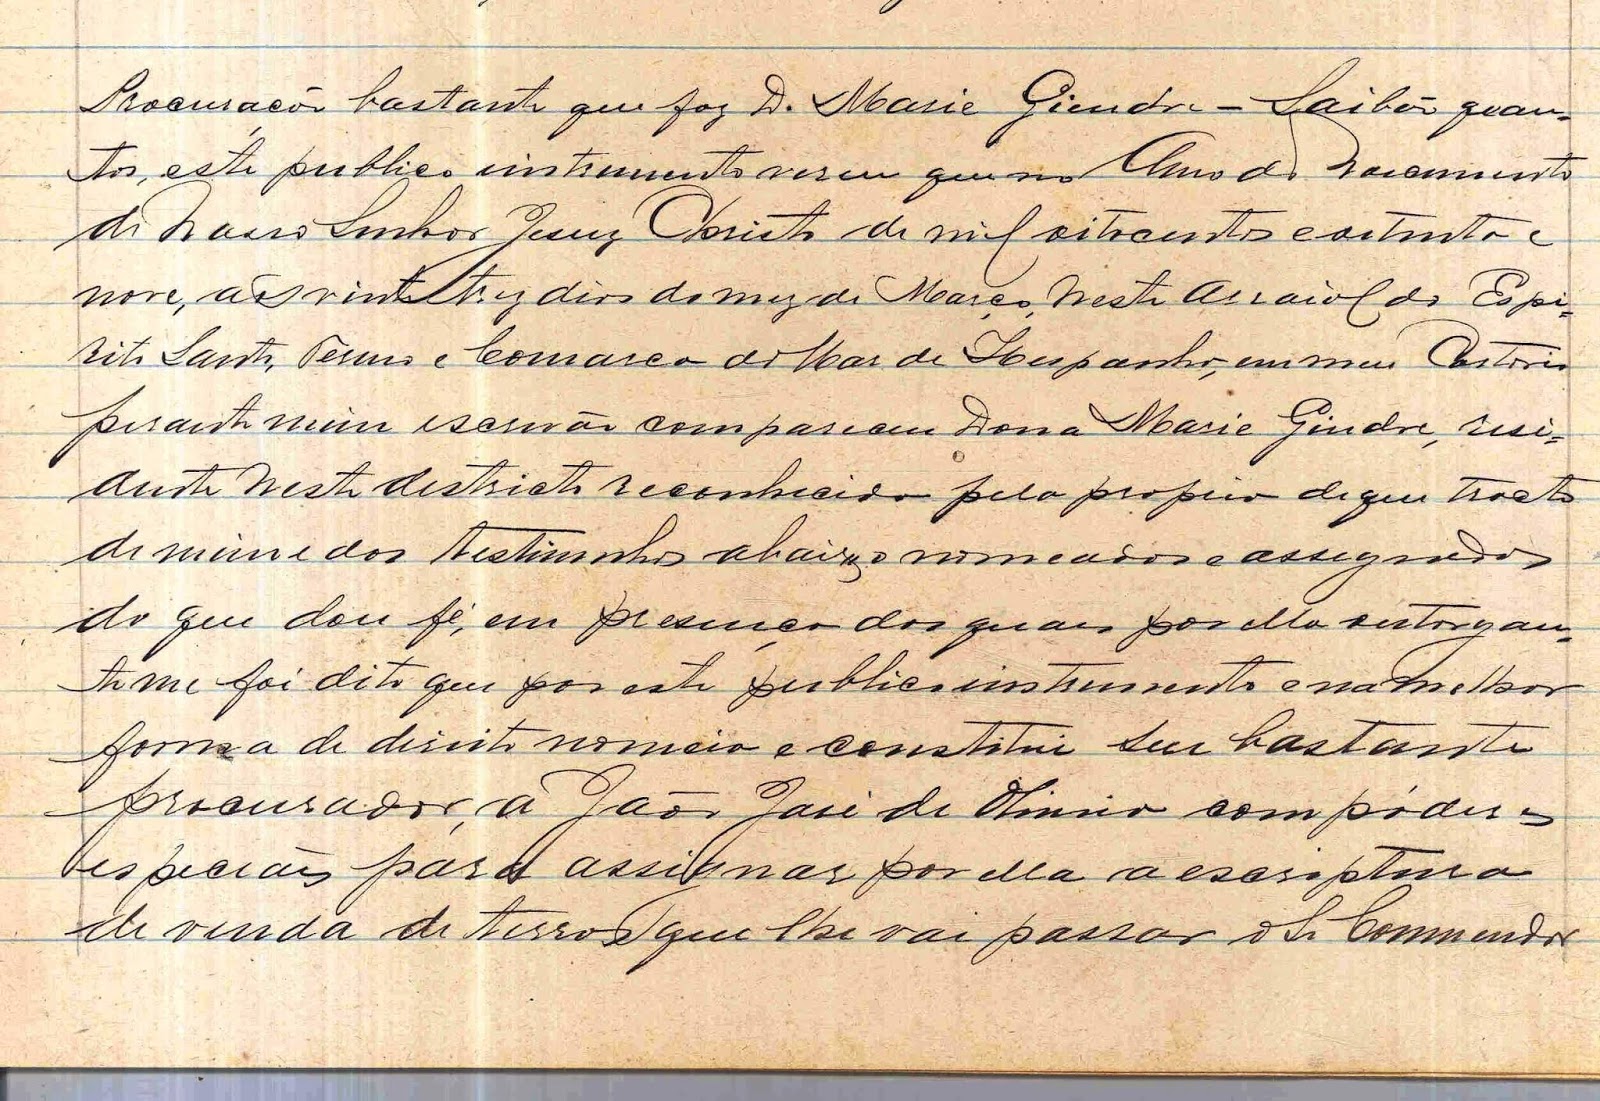 Procuração bastante que faz D. Marie Giendre - Saibão quan-
tos, este publico instrumento virem que no Anno do Nascimento
de Nosso Senhor Jesuz Christo de mil oitocentos e oitenta e
nove, aos vinte trez dias do mez de Março, Neste Arraial do Espi-
rito Santo, Termo e Comarca do Mar de Hespanha, em meu Cartorio
perante mim escrivão compareceu Dona Marie Gindre, resi-
dente Neste districto reconhecida pela propria de que tracto
de mim e das testimunhas abaixo nomeadas e assegnadas
do que dou fé, em presença das quais por ella outorgan-
te me foi dito que por este publico instrumento e na melhor
forma de direito nomeia e constitue seu bastante
procurador, a João José de com póderes
especiáes para assignar por ella a escriptura
de venda de terras que lhe vai passar o Sr Commendor